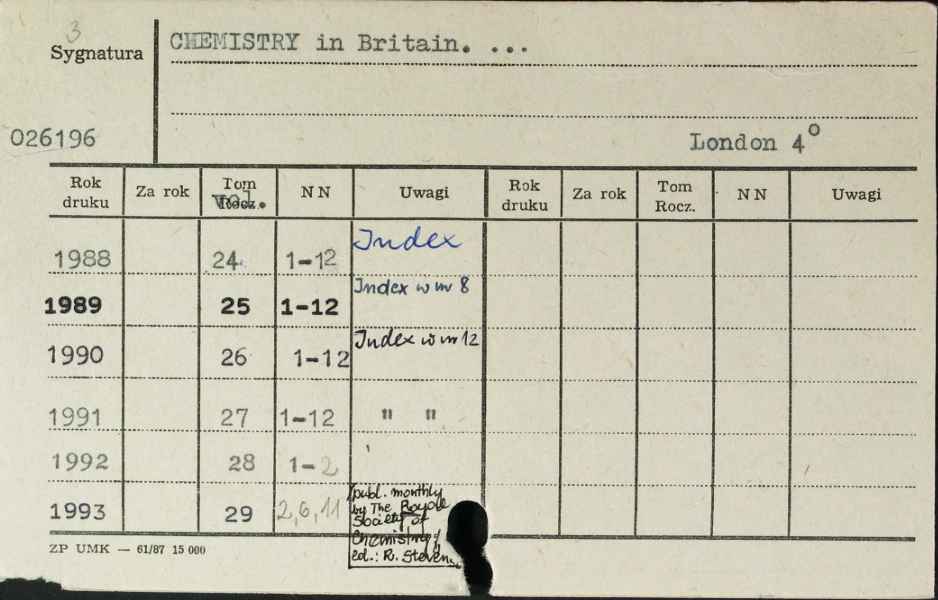 3
Sygnatura
CHEMISTRY in Britain. ...
026196
London 4°
Rok druku Za rok Tom Rocz. Vol. NN Uwagi Rok druku Za rok Tom Rocz. NN Uwagi
1988 24 1-12 Index
1989 25 1-12 Index w nr 8
1990 26 1-12 Index w nr 12
1991 27 1-12 " "
1992 28 1-2
1993 29 2,6,11
publ. monthly
by The Royal
Society of
Chemistry;
ed.: R. Steven
ZP UMK — 61/87 15 000